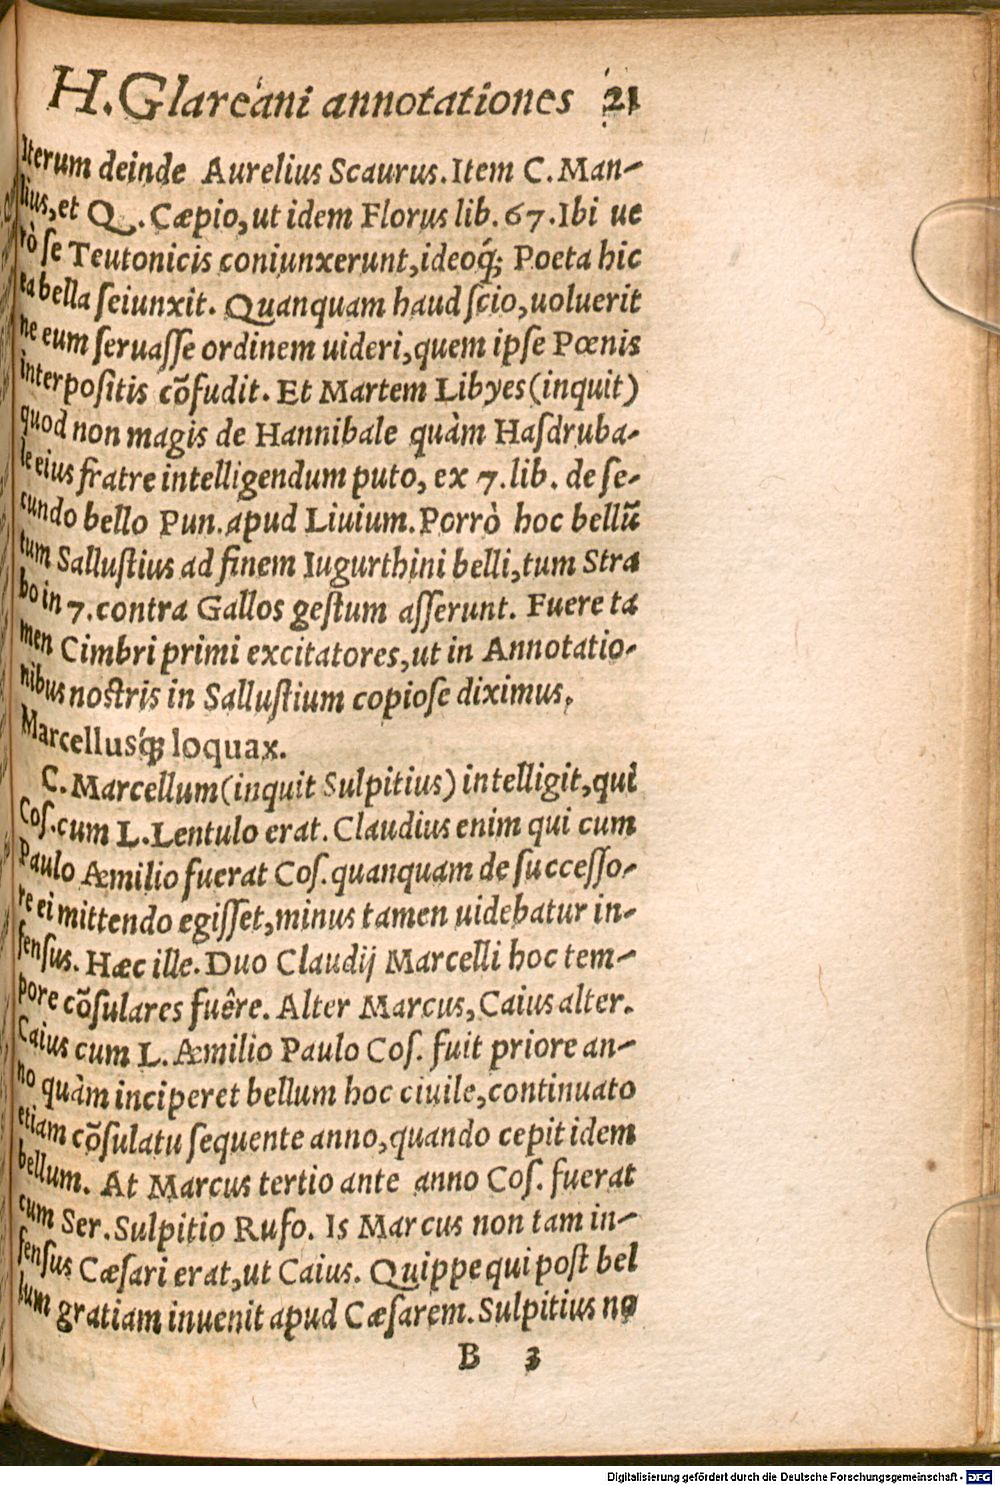 H. Glareani annotationes 21
Iterum deinde Aurelius Scaurus. Item C. Man-
lius, et Q. Cæpio, ut idem Florus lib. 67. Ibi ue
rò ſe Teutonicis coniunxerunt, ideoq́; Poeta hic
ea bella ſeiunxit. Quanquam haud ſcio, uoluerit
ne eum ſeruaſſe ordinem uideri, quem ipſe Pœnis
interpoſitis cõfudit. Et Martem Libyes (inquit)
quod non magis de Hannibale quàm Haſdruba-
le eius fratre intelligendum puto, ex 7. lib. de ſe-
cundo bello Pun. apud Liuium. Porrò hoc bellũ
tum Salluſtius ad finem Iugurthini belli, tum Stra
bo in 7. contra Gallos geſtum aſſerunt. Fuere ta
men Cimbri primi excitatores, ut in Annotatio-
nibus noſtris in Salluſtium copioſe diximus.
Marcellusq́; loquax.
C. Marcellum (inquit Sulpitius) intelligit, qui
Coſ. cum L. Lentulo erat. Claudius enim qui cum
Paulo Æmilio fuerat Coſ. quanquam de ſucceſſo-
re ei mittendo egiſſet, minus tamen uidebatur in-
fenſus. Hæc ille. Duo Claudij Marcelli hoc tem-
pore cõſulares fuêre. Alter Marcus, Caius alter.
Caius cum L. Æmilio Paulo Coſ. fuit priore an-
no quàm inciperet bellum hoc ciuile, continuato
etiam cõſulatu ſequente anno, quando cepit idem
bellum. At Marcus tertio ante anno Coſ. fuerat
cum Ser. Sulpitio Rufo. Is Marcus non tam in-
fenſus Cæſari erat, ut Caius. Quippe qui poſt bel
lum gratiam inuenit apud Cæſarem. Sulpitius no
B 3
Digitalisierung gefördert durch die Deutsche Forschungsgemeinschaft - DFG